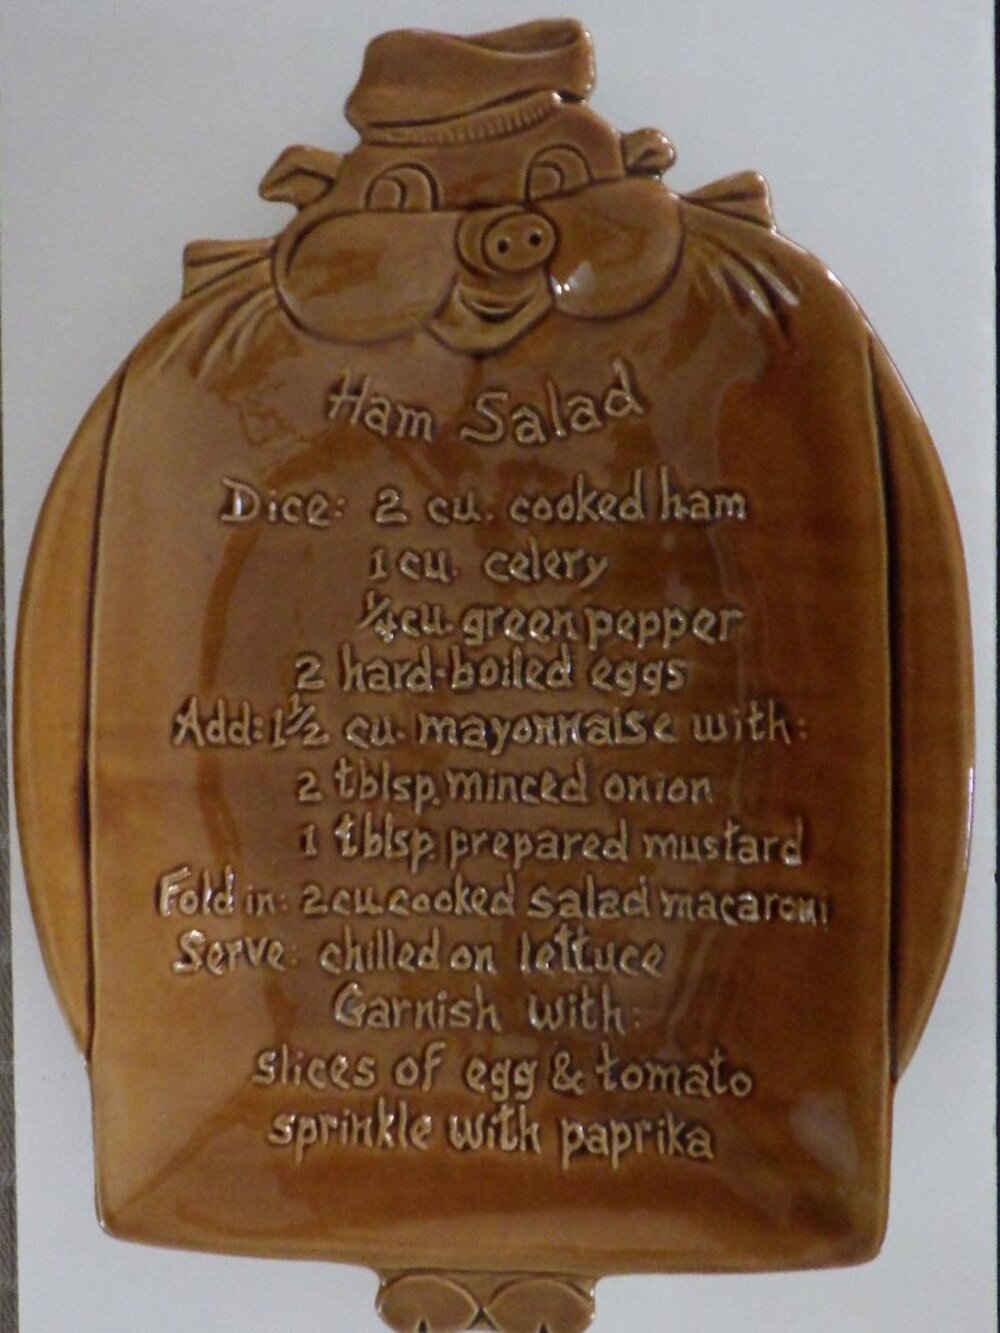 Ham Salad
Dice: 2 cu. cooked ham
1 cu. celery
¼ cu. green pepper
2 hard-boiled eggs
Add: 1½ cu. mayonnaise with:
2 tblsp. minced onion
1 tblsp. prepared mustard
Fold in: 2 cu. cooked salad macaroni
Serve: chilled on lettuce
Garnish with:
slices of egg & tomato
sprinkle with paprika